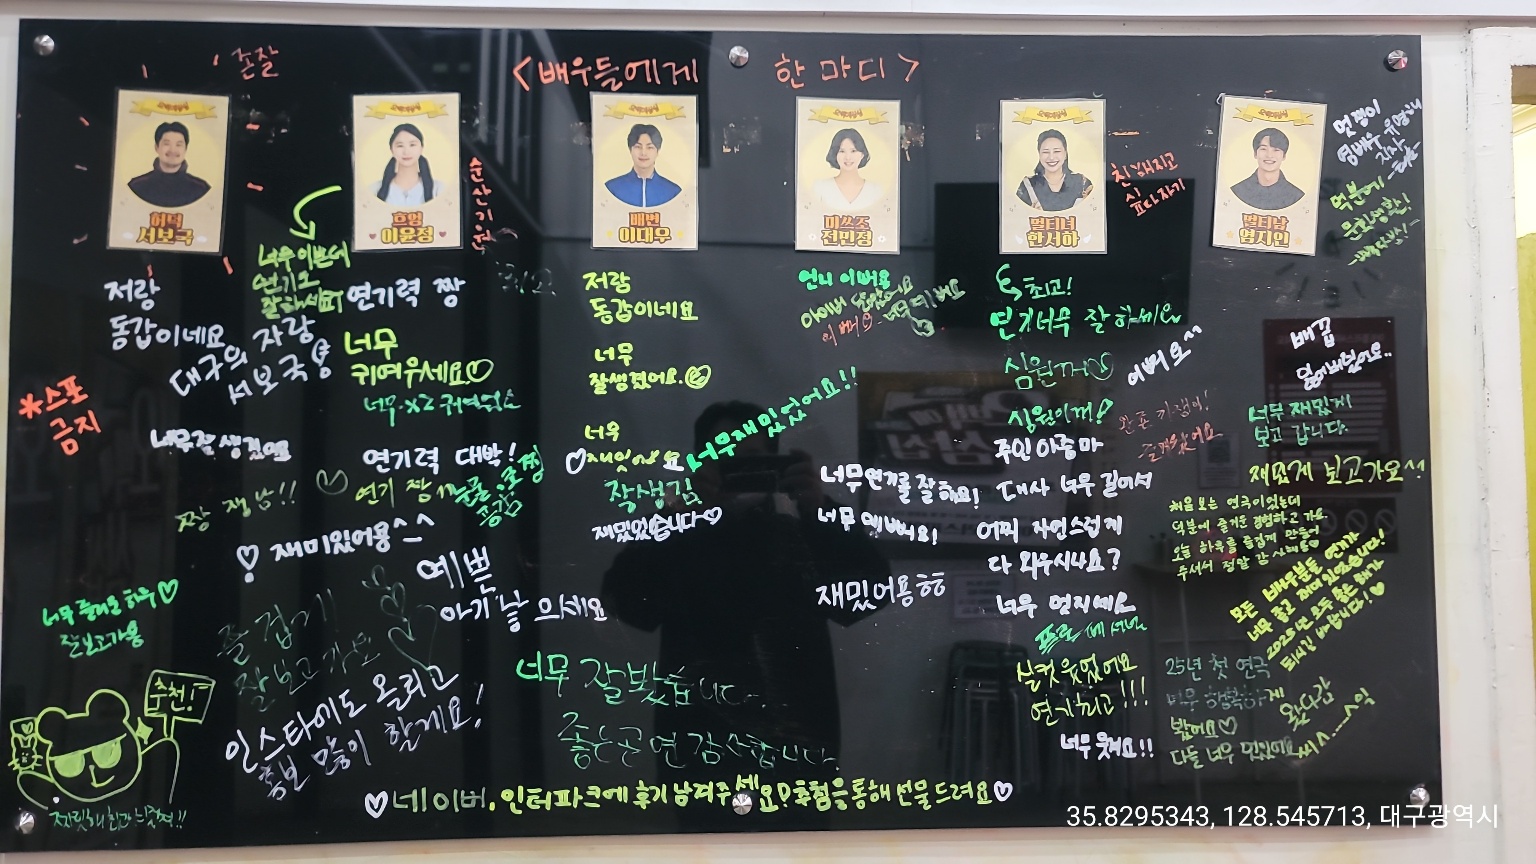 존잘
<배우들에게 한마디>
허덕
서보국
흐엉
이윤정
매변
이대우
미쓰조
전민정
멀티녀
한서하
멀티남
염지인
순산기원
친해지고
싶다지게
저랑
동갑이네요
대구의 자랑
서보국
너무 이쁜데
연기도
잘하세요
연기력 짱
너무
귀여우세요♡
너무x2 귀여워요
연기력 대박!
저랑
동갑이네요
너무
잘생겼어요.
너무
재밋어요
잘생김
재밌었습니다♡
너무재밌었어요!!
언니 이뻐요
최고!
연기너무 잘 하세요
심원까♡
이뻐요^^
배꼽
너무 재밌게
보고 갑니다.
재밌게 보고가요^^
주인 아줌마
대사 너무 길어서
어찌 자연스럽게
다 외우시나요?
너무 멋지세요
너무연기를 잘해요!
너무 예뻐요!
재밌어용ㅎㅎ
*스포
금지
너무잘생겼어요
짱 잼남!!
♡ 재미있어용^^
예쁜
아기 낳으세요
너무 즐거운 하루♡
잘보고가용
즐겁게
잘보고가요
추천!
인스타에도 올리고
홍보 많이 할게요!
너무 잘봤습니다.
좋은공연 감사합니다.
처음 보는 연극이었는데
덕분에 즐거운 경험하고 가요
오늘 하루를 즐겁게 만들어
주셔서 정말 감사해용
모든 배우분들 연기가
너무 좋고 재미있었습니다!
2025년 모두 좋은 해가
되시길 바랍니다!♡
실컷 웃었어요
연기최고!!!
너무 웃겨요!!
25년 첫 연극
너무 행복하게
봤어요♡
다들 너무 멋있어요
왔다감
♡네이버, 인터파크에 후기 남겨주세요! 추첨을 통해 선물 드려요♡
35.8295343, 128.545713, 대구광역시